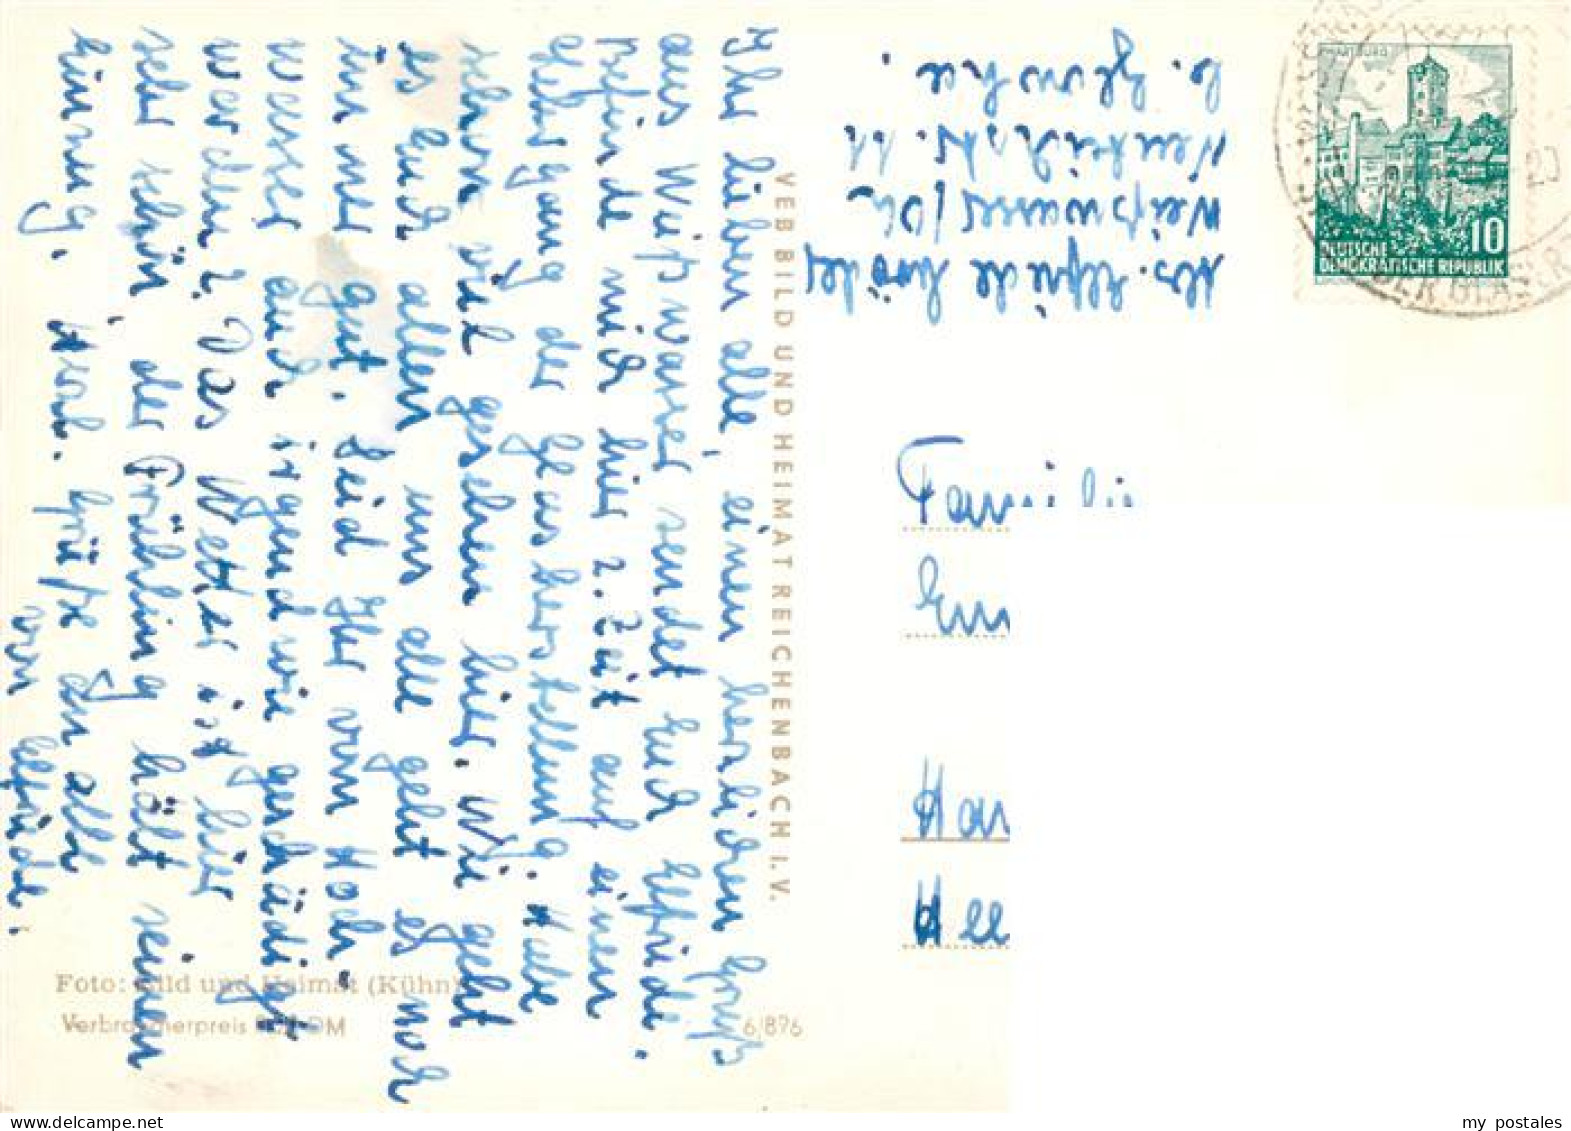 Ihr lieben alle, einen herzlichen Gruß
aus Weißwasser sendet Euch Elfriede.
Befinde mich hier z. Zeit auf einem
Lehrgang der Glasherstellung. Habe
schon viel gesehen hier. Wie geht
es Euch allen uns alle geht es noch
immer gut. Seid Ihr vom Hoch-
wasser auch irgendwie geschädigt
worden? Das Wetter ist hier
sehr schön, der Frühling hält seinen
Einzug. Grüße an alle
von Elfriede.
Elfriede
Weißwasser/OL
VEB BILD UND HEIMAT REICHENBACH I. V.
Foto: Bild und Heimat (Kühn)
Verbraucherpreis DM
6/876
WARTBURG
10
DEUTSCHE
DEMOKRATISCHE REPUBLIK
DER GLAS
Familie
Em
Har
Hee
my_postales